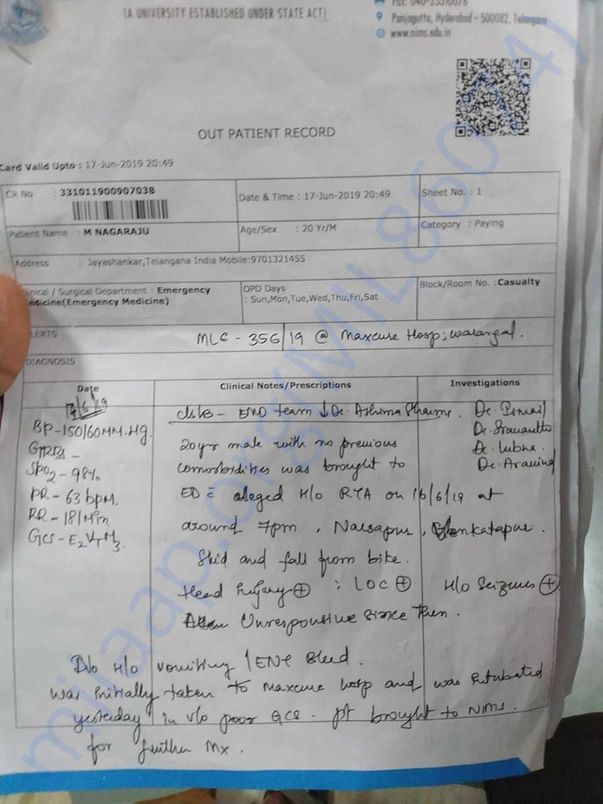 (A UNIVERSITY ESTABLISHED UNDER STATE ACT)
Panjagutta, Hyderabad - 500082, Telangana
www.nims.edu.in
OUT PATIENT RECORD
Card Valid Upto : 17-Jun-2019 20:49
CR No : 331011900907038
Date & Time : 17-Jun-2019 20:49
Sheet No. : 1
Patient Name : M NAGARAJU
Age/Sex : 20 Yr/M
Category : Paying
Address : Jayashankar,Telangana India Mobile:9701321455
Clinical / Surgical Department : Emergency Medicine(Emergency Medicine)
OPD Days : Sun,Mon,Tue,Wed,Thu,Fri,Sat
Block/Room No. : Casualty
ALERTS
MLC - 356/19 @ Maxcure Hosp; Warangal.
DIAGNOSIS
Date
Clinical Notes/Prescriptions
Investigations
17/6/19
BP-150/60MM.Hg.
GRBS -
SPO2 - 98%
PR - 63 bpm.
RR - 18/Min
GCS - E2VTM3.
c/s/b - EMD team ↓ Dr. Ashima Sharma.
Dr. Ismail
Dr. Lubna
Dr. Aravind
20yr male with no previous
comorbidities was brought to
ED c̄ alleged H/o RTA on 16/6/19 at
around 7pm, Narsapur, Venkatapur.
Skid and fall from bike.
Head Injury ⊕ ; LOC ⊕ H/o Seizures ⊕
Unresponsive since then.
No H/o vomiting / ENT Bleed.
Was initially taken to Maxcure hosp and was intubated
yesterday in v/o poor GCS. pt brought to NIMS.
for further Mx.
milaap.org(MIL86014)